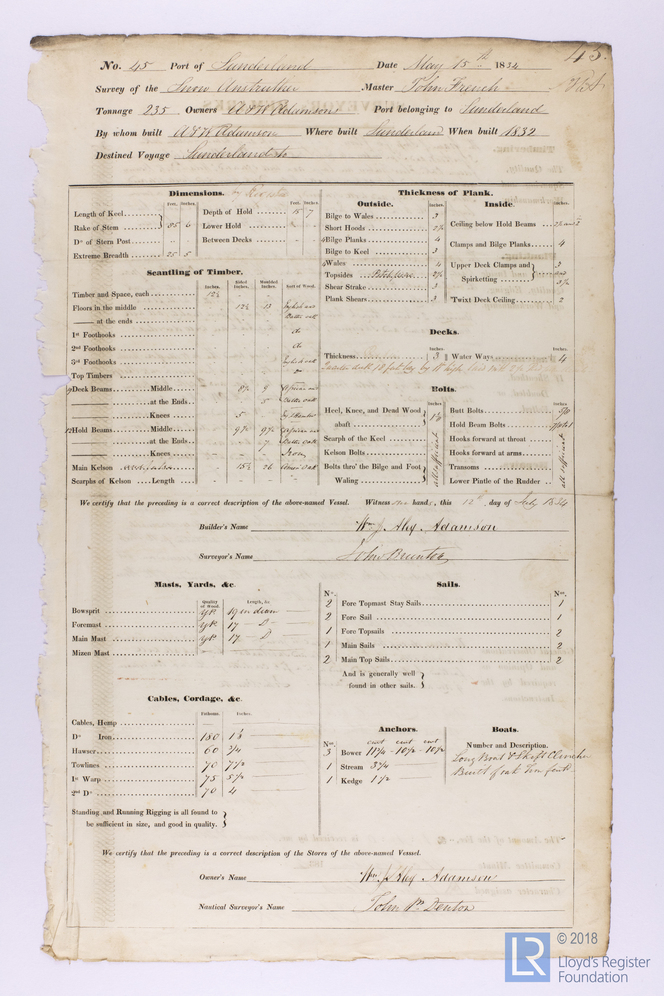 45.
No. 45 Port of Sunderland Date May 15th 1834
Survey of the Snow Anstruther Master John French
Tonnage 235 Owners A & W Adamson Port belonging to Sunderland
By whom built A & W Adamson Where built Sunderland When built 1832
Destined Voyage Sunderland to
Dimensions.
Feet. Inches. Feet. Inches.
Length of Keel
Rake of Stem 85 6
Do of Stern Post
Extreme Breadth 25 5
Depth of Hold 15 7
Lower Hold
Between Decks
Scantling of Timber.
Inches. Sided Inches. Moulded Inches. Sort of Wood.
Timber and Space, each
Floors in the middle
—— at the ends
1st Foothooks do
2nd Foothooks do
3rd Foothooks
Top Timbers
Deck Beams Middle 9
—— at the Ends 5
—— Knees 5
Hold Beams Middle
—— at the Ends 7
—— Knees Iron
Main Kelson
Scarphs of Kelson Length
Thickness of Plank.
Outside. Inches.
Bilge to Wales 3
Short Hoods 2½
Bilge Planks 4
Bilge to Keel 3
Wales 4
Topsides Pitch pine 2½
Shear Strake 3
Plank Shears 3
Inside. Inches.
Ceiling below Hold Beams
Clamps and Bilge Planks 4
Upper Deck Clamps and Spirketting 3 and 2½
'Twixt Deck Ceiling 2
Decks.
Inches. Inches.
Thickness 3 Water Ways 4
Bolts.
Inches. Inches.
Heel, Knee, and Dead Wood abaft
Scarph of the Keel
Kelson Bolts
Bolts thro' the Bilge and Foot Waling
all sufficient
Butt Bolts
Hold Beam Bolts
Hooks forward at throat
Hooks forward at arms
Transoms
Lower Pintle of the Rudder
all sufficient
We certify that the preceding is a correct description of the above-named Vessel. Witness our hands, this 12th day of July 1834
Builder's Name Wm & Alex Adamson
Surveyor's Name John Brunton
Masts, Yards, &c.
Quality of Wood. Length, &c.
Bowsprit
Foremast 17
Main Mast 17
Mizen Mast
Sails.
No. Nos.
2 Fore Topmast Stay Sails 1
2 Fore Sail 1
1 Fore Topsails 2
1 Main Sails 2
2 Main Top Sails 2
And is generally well found in other sails.
Cables, Cordage, &c.
Fathoms. Inches.
Cables, Hemp
Do Iron 180
Hawser 60
Towlines 70 7½
1st Warp 75 5½
2nd Do 70 4
Standing and Running Rigging is all found to be sufficient in size, and good in quality.
Anchors.
Nos. cwt cwt cwt
3 Bower 11¼ - 10½ - 10½
1 Stream 3¼
1 Kedge 1½
Boats.
Number and Description.
Long Boat & Skiff Clincher
Built of oak
We certify that the preceding is a correct description of the Stores of the above-named Vessel.
Owner's Name Wm & Alex Adamson
Nautical Surveyor's Name John Denton
LR
© 2018
Lloyd's Register
Foundation